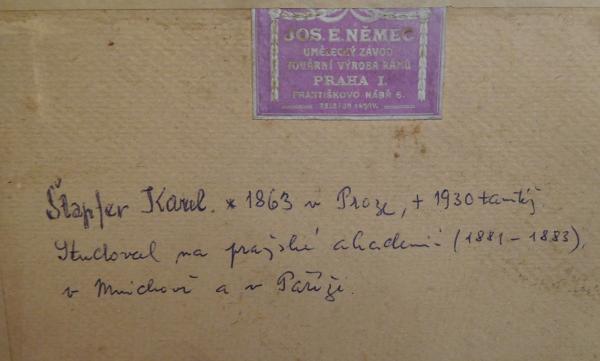 JOS. E. NĚMEC
UMĚLECKÝ ZÁVOD
TOVÁRNÍ VÝROBA RÁMŮ
PRAHA I.
FRANTIŠKOVO NÁBŘ 6.
TELEFON
Štapfer Karel. * 1863 v Praze, + 1930 tamtéž.
Studoval na pražské akademii (1881-1883),
v Mnichově a v Paříži.